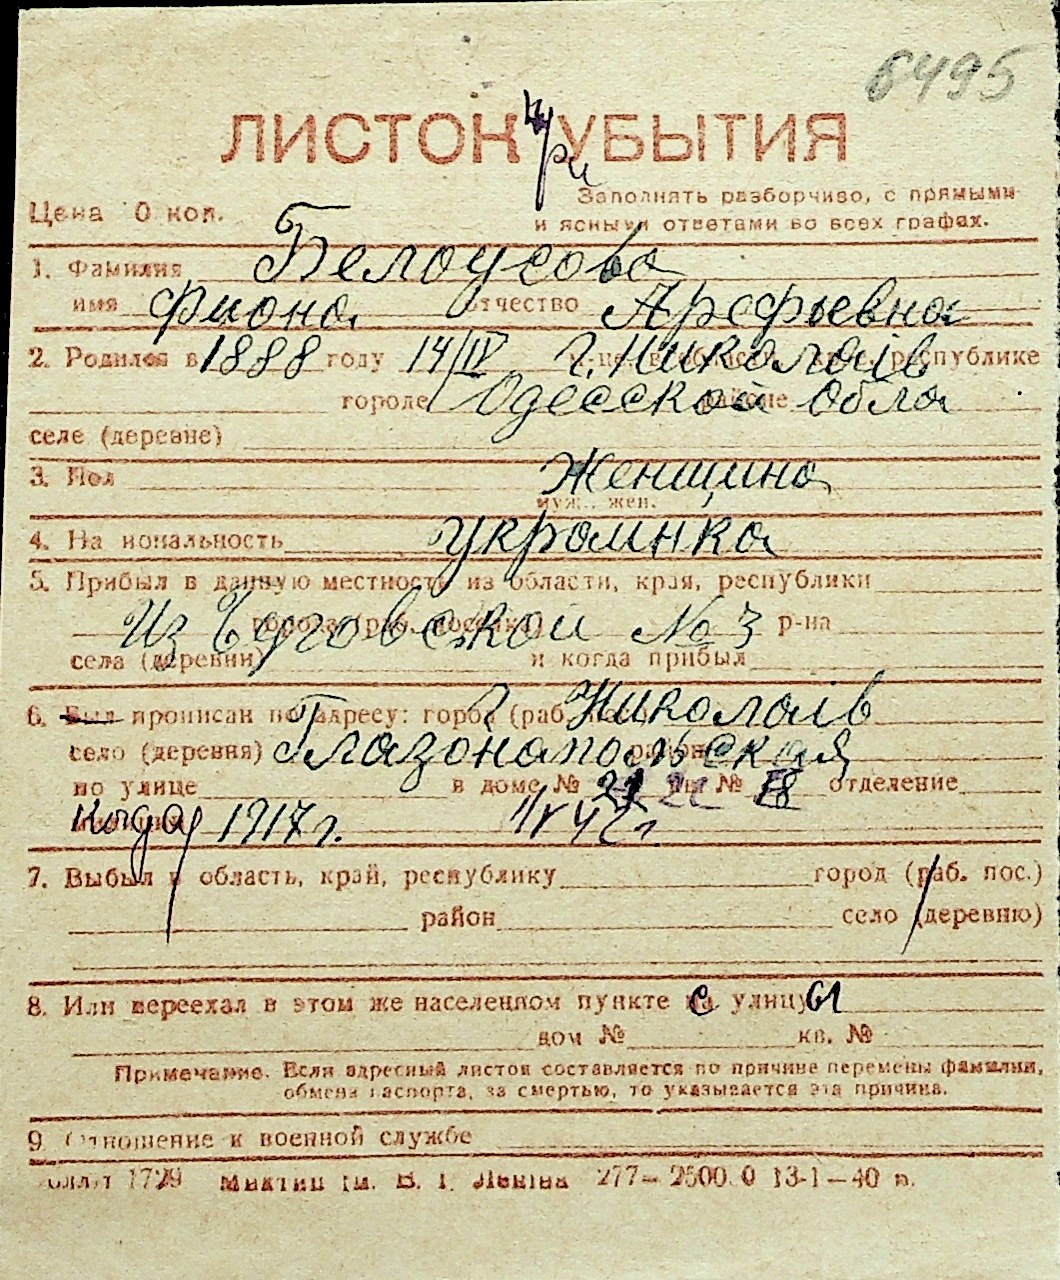 6495
ЛИСТОК УБЫТИЯ
Цена 0 коп.
Заполнять разборчиво, с прямыми
и ясными ответами во всех графах.
1. Фамилия Белоусова
имя Фиона отчество Арефьевна
2. Родился в 1888 году 14/IV г. Николаів республике
городе Одесской районе Обла
селе (деревне)
3. Пол Женщина
муж. жен.
4. Национальность украинка
5. Прибыл в данную местность из области, края, республики
Из № 3 р-на
села (деревни) и когда прибыл
6. Был прописан по адресу: город (раб. Г. Николаів
село (деревня)
по улице в доме № 22 № отделение
когда 1917 г. 42 г.
7. Выбыл в область, край, республику город (раб. пос.)
район село (деревню)
8. Или переехал в этом же населенном пункте с улицы
дом № кв. №
Примечание. Если адресный листок составляется по причине перемены фамилии,
обмена паспорта, за смертью, то указывается эта причина.
9. Отношение к военной службе
1729 Ленiна 277—2500.0 13-1—40 р.